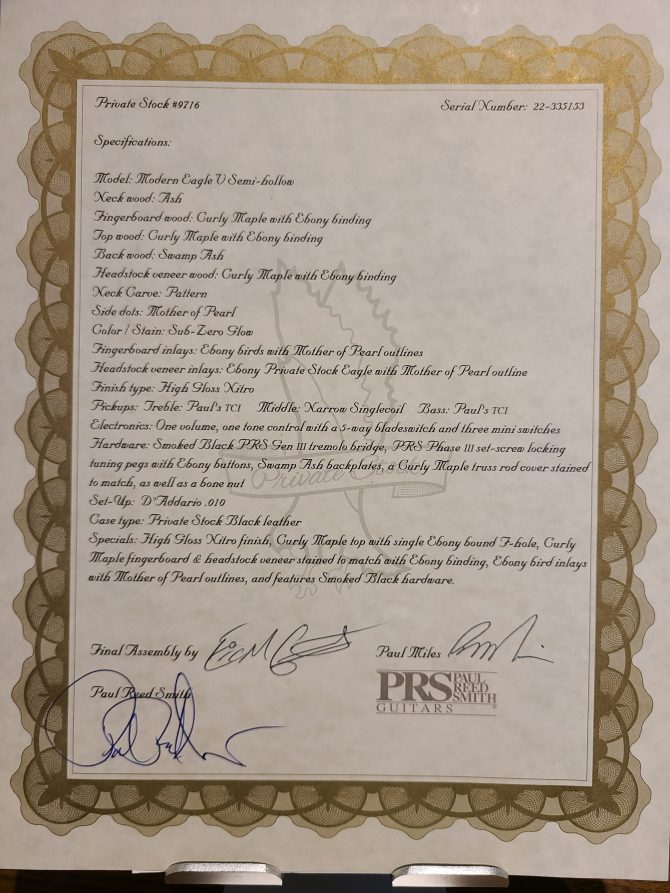 Private Stock #9716 Serial Number: 22-335153
Specifications:
Model: Modern Eagle V Semi-hollow
Neck wood: Ash
Fingerboard wood: Curly Maple with Ebony binding
Top wood: Curly Maple with Ebony binding
Back wood: Swamp Ash
Headstock veneer wood: Curly Maple with Ebony binding
Neck Carve: Pattern
Side dots: Mother of Pearl
Color / Stain: Sub-Zero Glow
Fingerboard inlays: Ebony birds with Mother of Pearl outlines
Headstock veneer inlays: Ebony Private Stock Eagle with Mother of Pearl outline
Finish type: High Gloss Nitro
Pickups: Treble: Paul's TCI Middle: Narrow Singlecoil Bass: Paul's TCI
Electronics: One volume, one tone control with a 5-way bladeswitch and three mini switches
Hardware: Smoked Black PRS Gen III tremolo bridge, PRS Phase III set-screw locking
tuning pegs with Ebony buttons, Swamp Ash backplates, a Curly Maple truss rod cover stained
to match, as well as a bone nut
Private Stock
Set-Up: D'Addario .010
Case type: Private Stock Black leather
Specials: High Gloss Nitro finish, Curly Maple top with single Ebony bound F-hole, Curly
Maple fingerboard & headstock veneer stained to match with Ebony binding, Ebony bird inlays
with Mother of Pearl outlines, and features Smoked Black hardware.
Final Assembly by
Paul Miles
Paul Reed Smith
PRS PAUL REED SMITH
GUITARS